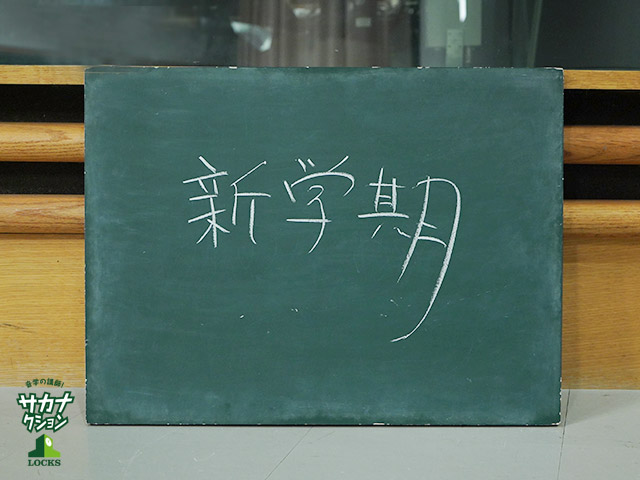 新学期
音学の講師!
サカナ
クション
LOCKS